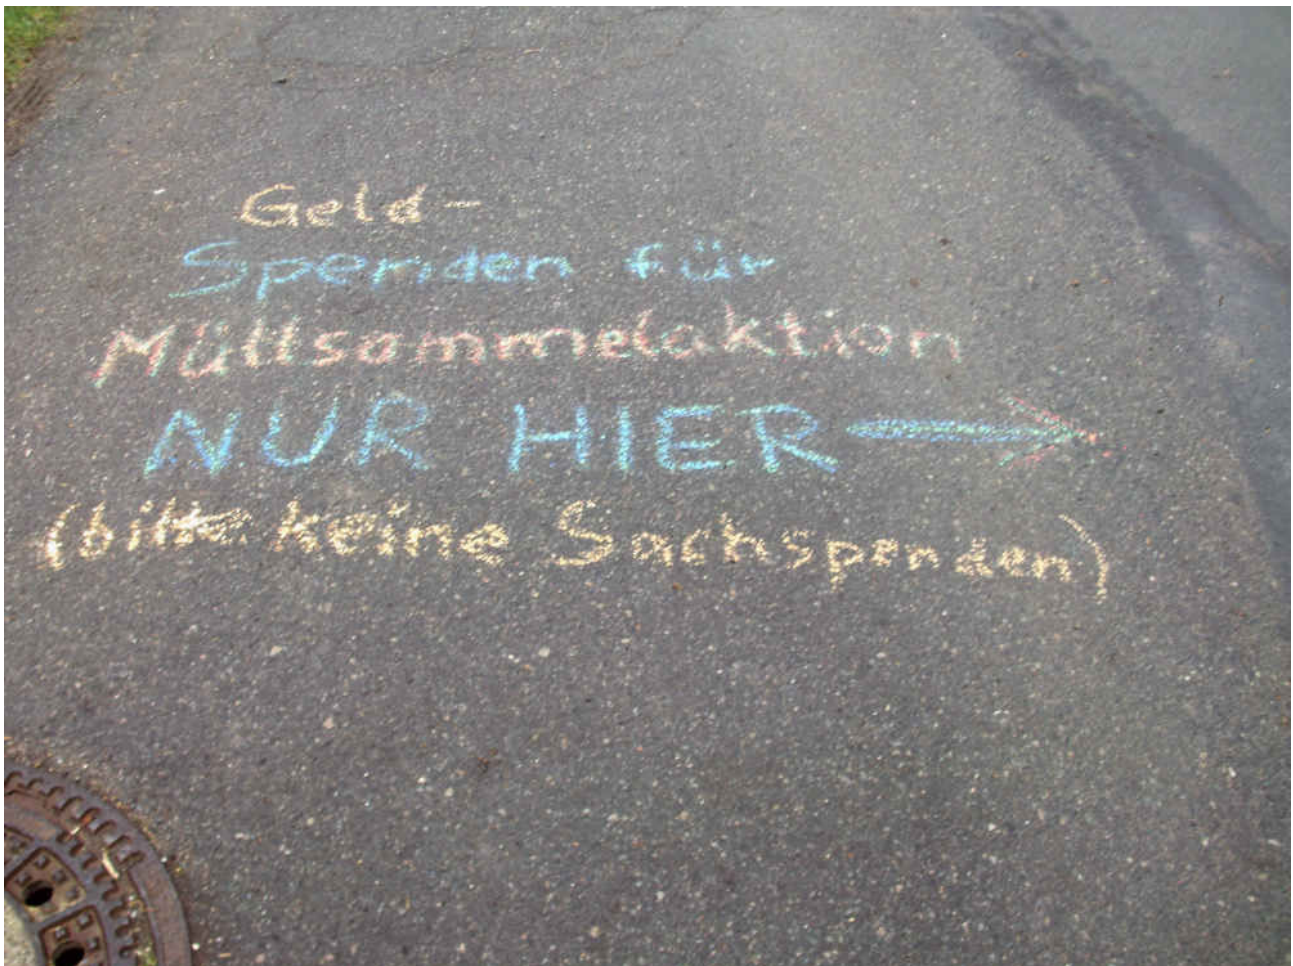 Geld-
Spenden für
Müllsammelaktion
NUR HIER →
(bitte keine Sachspenden)